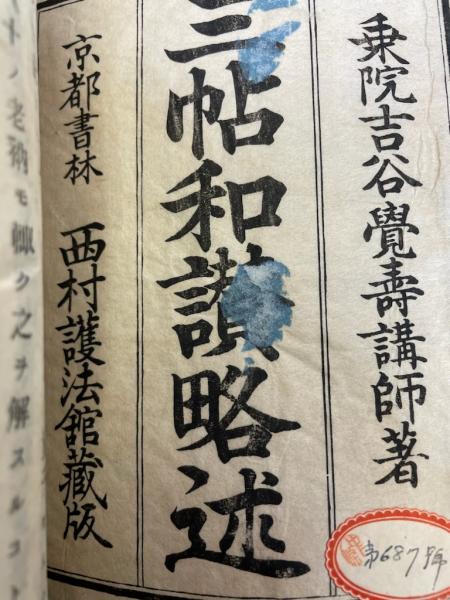 乗院吉谷覺壽講師著
三帖和讃略述
京都書林 西村護法館蔵版
ノ老衲モ輙ク之ヲ解スルコ
第687號